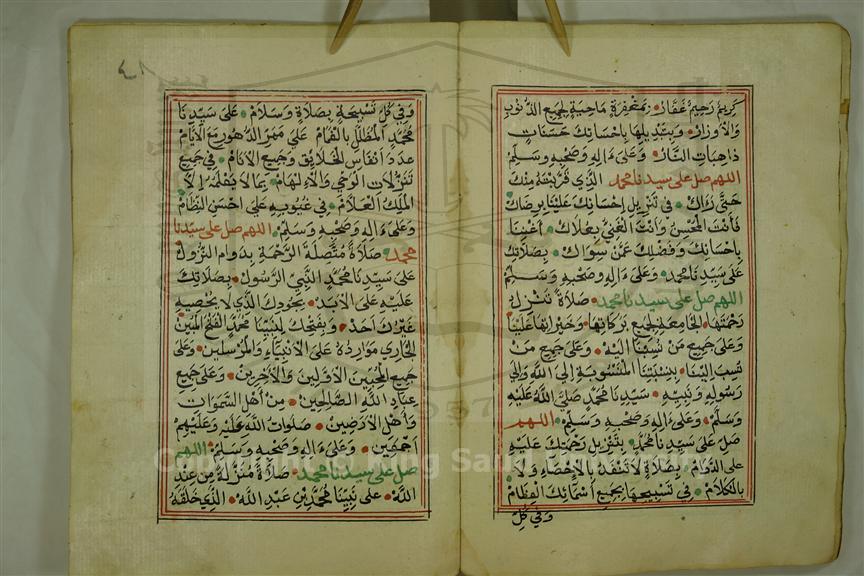 كريم رحيم غفار بمغفرة ماحية لجميع الذنوب
والاوزار وبتبديلها باحسانك حسنات
ذاهبات النار وعلى ءاله وصحبه وسلم
اللهم صل على سيدنا محمد الذي قربته منك
حتى رءاك في تنزيل احسانك علينا برضاك
فأنت المحسن وأنت الغني بعلاك أغننا
باحسانك وفضلك عمن سواك بصلاتك
على سيدنا محمد وعلى ءاله وصحبه وسلم
اللهم صل على سيدنا محمد صلاة تنزل
رحمتها الجامعة لجميع بركاتها وخيراتها علينا
وعلى جميع من نسبنا اليه وعلى جميع من
نسب إلينا بنسبتنا المنسوبة إلى الله وإلى
رسوله ونبيه سيدنا محمد صلى الله عليه
وسلم وعلى ءاله وصحبه وسلم اللهم
صل على سيدنا محمد بتنزيل رحمتك عليه
على الدوام بصلاة لا تنفد بالاحصاء ولا
بالكلام في تسبيحها بجميع أسمائك العظام
وفي كل
وفي كل تسبيحة بصلاة وسلام على سيدنا
محمد المظلل بالغمام على ممر الدهور مع الايام
عدد أنفاس الخلائق وجميع الانام في جميع
تنزلات الوحي والالهام بما لا يعلمه إلا
الملك العلام في غيوبه على احسن النظام
وعلى ءاله وصحبه وسلم اللهم صل على سيدنا
محمد صلاة متصلة الرحمة بدوام النزول
على سيدنا محمد النبي الرسول بصلاتك
عليه على الابد بجودك الذي لا يحصيه
غيرك احد وبفتحك لنبينا محمد الفتح المبين
الجاري موارده على الانبياء والمرسلين وعلى
جميع المحبين الاولين والآخرين وعلى جميع
عباد الله الصالحين من أهل السموات
وأهل الارضين صلوات الله عليه وعليهم
أجمعين وعلى ءاله وصحبه وسلم اللهم
صل على سيدنا محمد صلاة منزلة من عند
الله على نبينا محمد بن عبد الله الذي خلقه